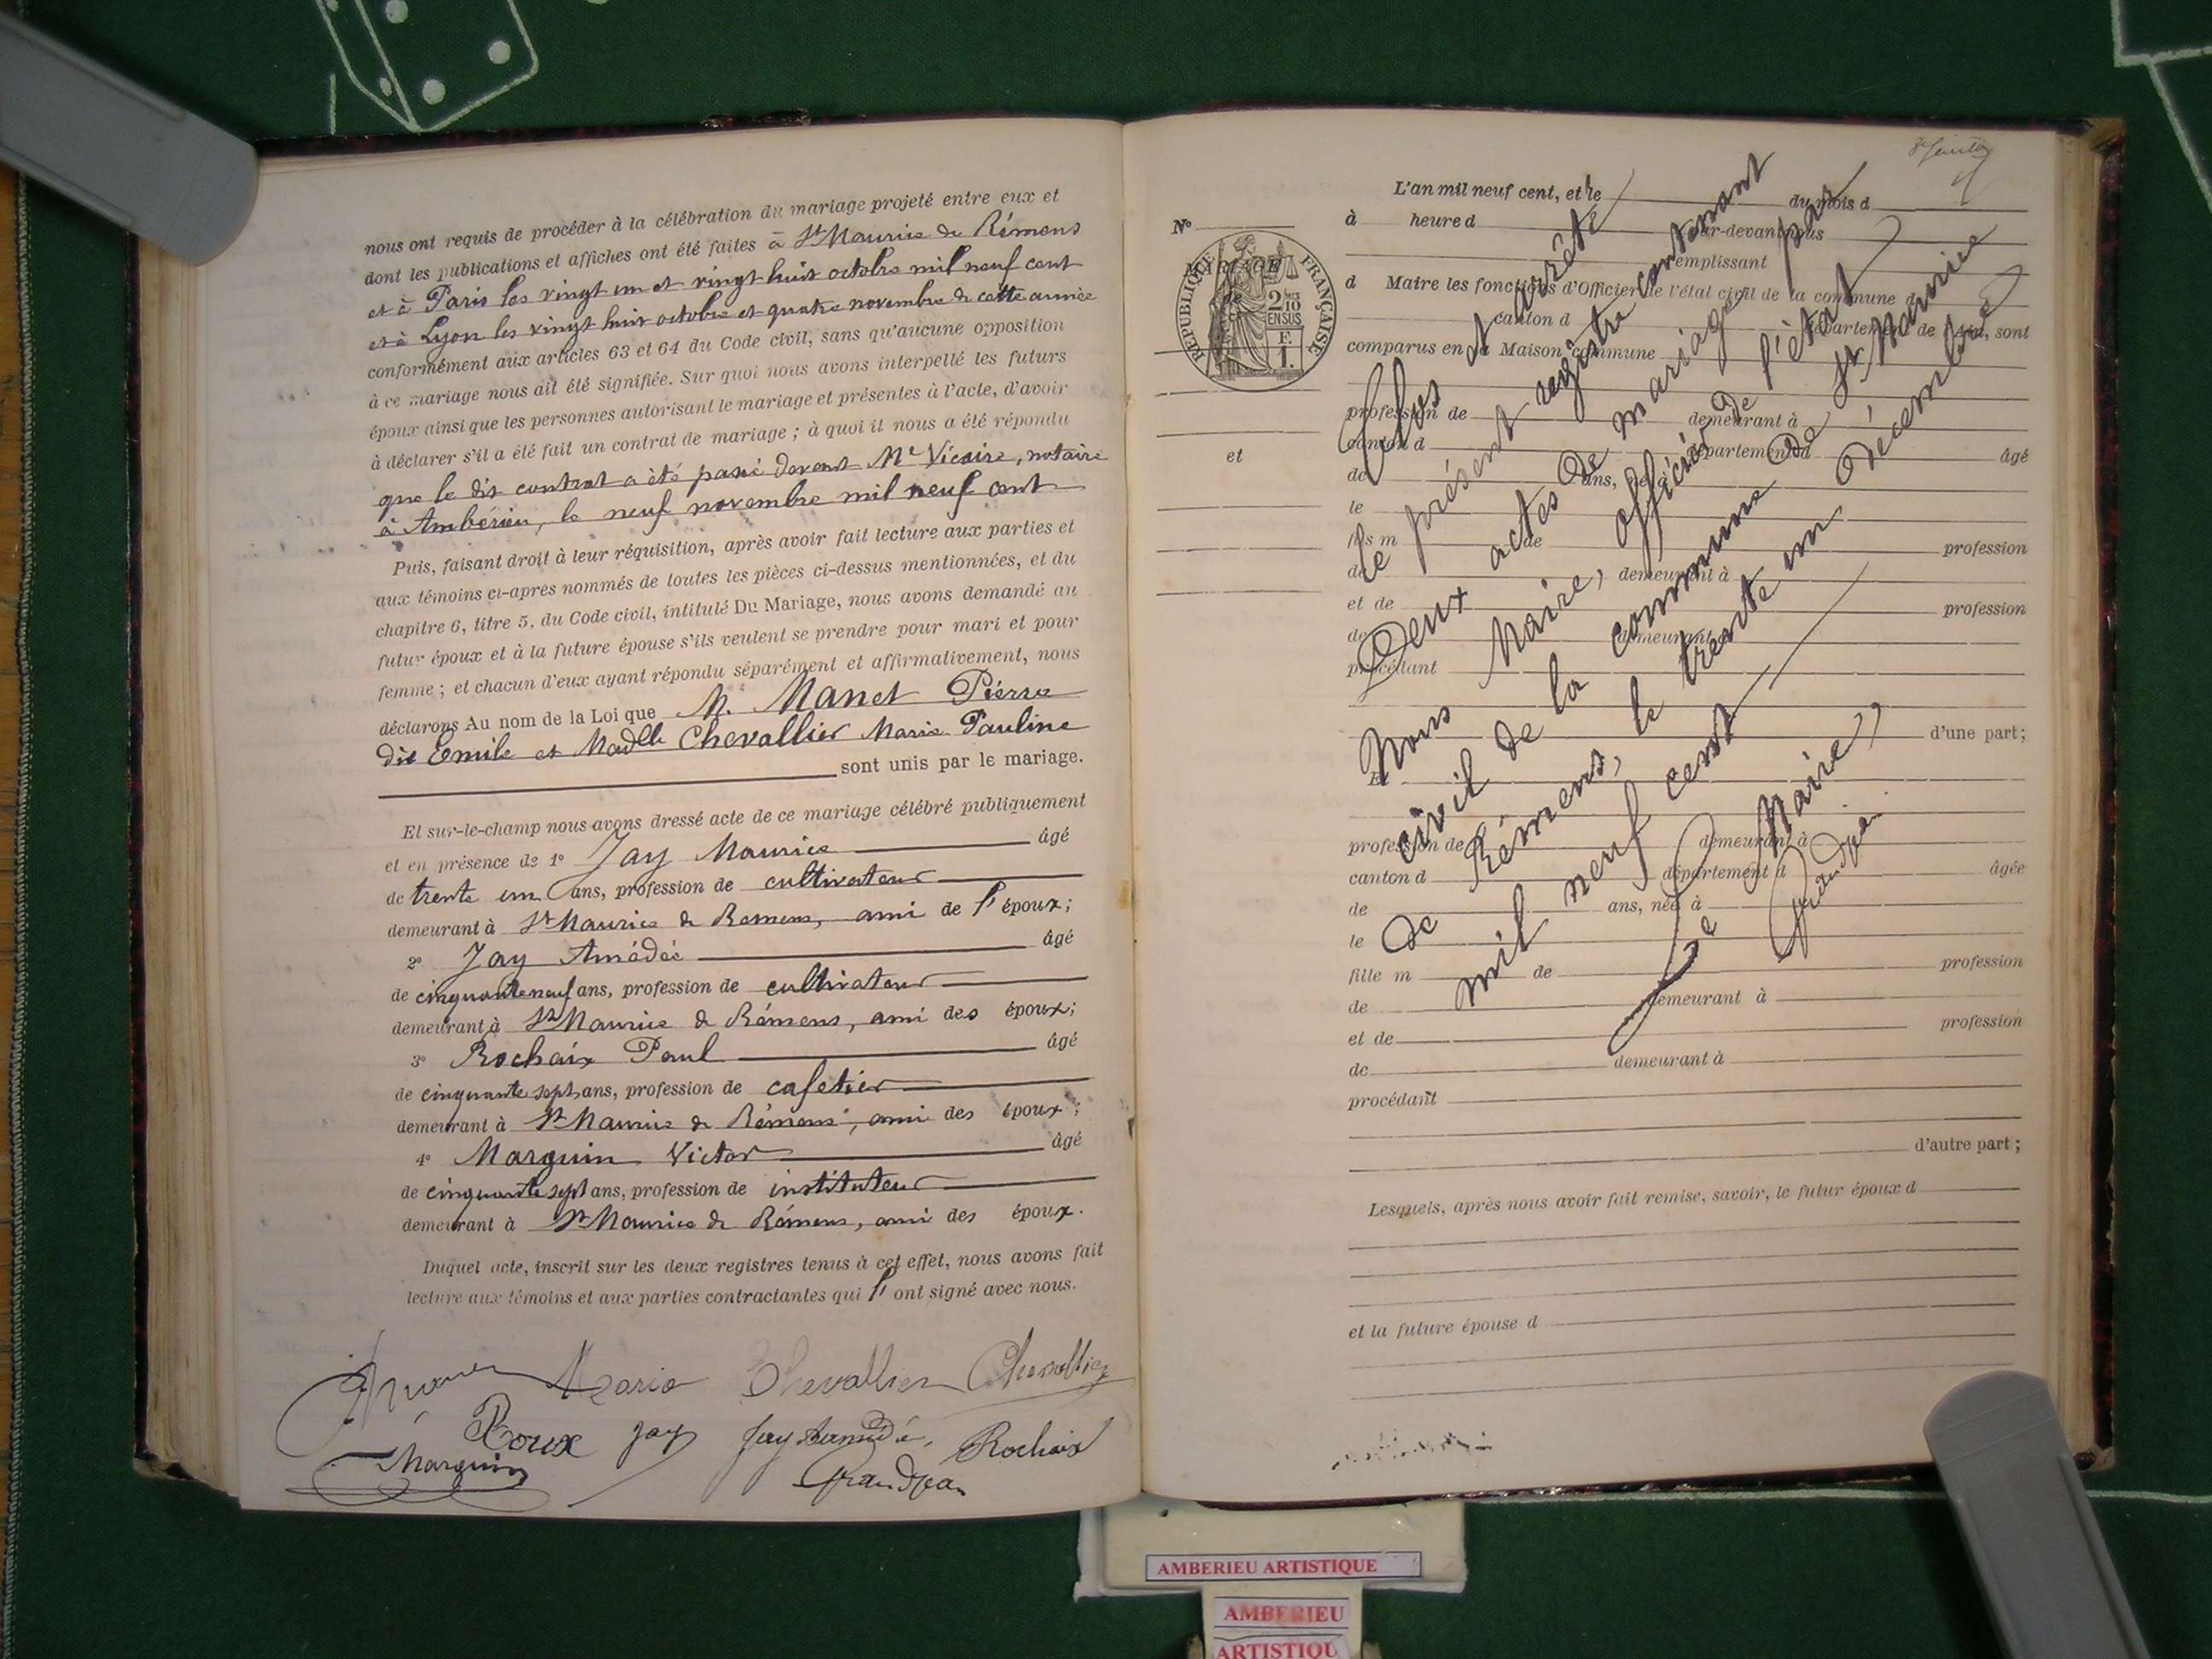 nous ont requis de procéder à la célébration du mariage projeté entre eux et
dont les publications et affiches ont été faites à St Maurice de Rémens
et à Paris les vingt un et vingt huit octobre mil neuf cent
et à Lyon les vingt huit octobre et quatre novembre de cette année
conformément aux articles 63 et 64 du Code civil, sans qu'aucune opposition
à ce mariage nous ait été signifiée. Sur quoi nous avons interpellé les futurs
époux ainsi que les personnes autorisant le mariage et présentes à l'acte, d'avoir
à déclarer s'il a été fait un contrat de mariage ; à quoi il nous a été répondu
que le dit contrat a été passé devant Me Vicaire, notaire
à Ambérieu, le neuf novembre mil neuf cent
Puis, faisant droit à leur réquisition, après avoir fait lecture aux parties et
aux témoins ci-après nommés de toutes les pièces ci-dessus mentionnées, et du
chapitre 6, titre 5, du Code civil, intitulé Du Mariage, nous avons demandé au
futur époux et à la future épouse s'ils veulent se prendre pour mari et pour
femme ; et chacun d'eux ayant répondu séparément et affirmativement, nous
déclarons Au nom de la Loi que M. Manet Pierre
dit Emile et Madlle Chevallier Marie Pauline
sont unis par le mariage.
Et sur-le-champ nous avons dressé acte de ce mariage célébré publiquement
et en présence de 1° Jay Maurice âgé
de trente un ans, profession de cultivateur
demeurant à St Maurice de Remens, ami de l'époux;
2° Jay Amédée âgé
de cinquante neuf ans, profession de cultivateur
demeurant à St Maurice de Rémens, ami des époux;
3° Rochaix Paul âgé
de cinquante sept ans, profession de cafetier
demeurant à St Maurice de Rémens, ami des époux;
4° Marguin Victor âgé
de cinquante sept ans, profession de instituteur
demeurant à St Maurice de Rémens, ami des époux.
Duquel acte, inscrit sur les deux registres tenus à cet effet, nous avons fait
lecture aux témoins et aux parties contractantes qui l'ont signé avec nous.
Marie Chevallier Chevallier
Roux Jay Jay Amédé Rochaix
Marguin Grandjean
L'an mil neuf cent, et le du mois d
N°
à heure d par-devant nous
remplissant
MARIAGE
de
RÉPUBLIQUE FRANÇAISE
2/10 EN SUS
F. 1.
d Maire les fonctions d'Officier de l'état civil de la commune d
canton d département de l'Ain, sont
comparus en la Maison commune
profession de demeurant à
canton d département d âgé
et
de ans, né à
le
fils m de profession
de demeurant à
et de profession
de demeurant à
procédant
d'une part;
Et
profession de demeurant à
canton d département d âgée
de ans, née à
le
fille m de profession
de demeurant à
et de profession
de demeurant à
procédant
d'autre part ;
Lesquels, après nous avoir fait remise, savoir, le futur époux d
et la future épouse d
Clos et arrêté
le présent registre contenant
Deux actes de mariage par
Nous Maire, officier de l'état
civil de la commune de St Maurice
de Rémens, le trente un décembre
mil neuf cent
Le Maire,
Grandjean
AMBERIEU ARTISTIQUE
AMBERIEU
ARTISTIQU